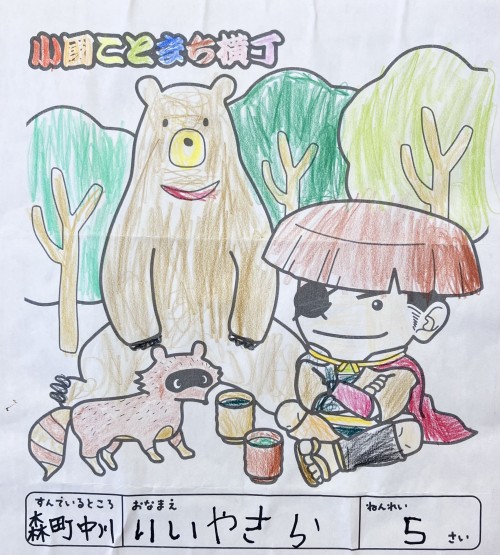 小國ことまち横丁
すんでいるところ おなまえ ねんれい
森町中川 いいやさら 5 さい